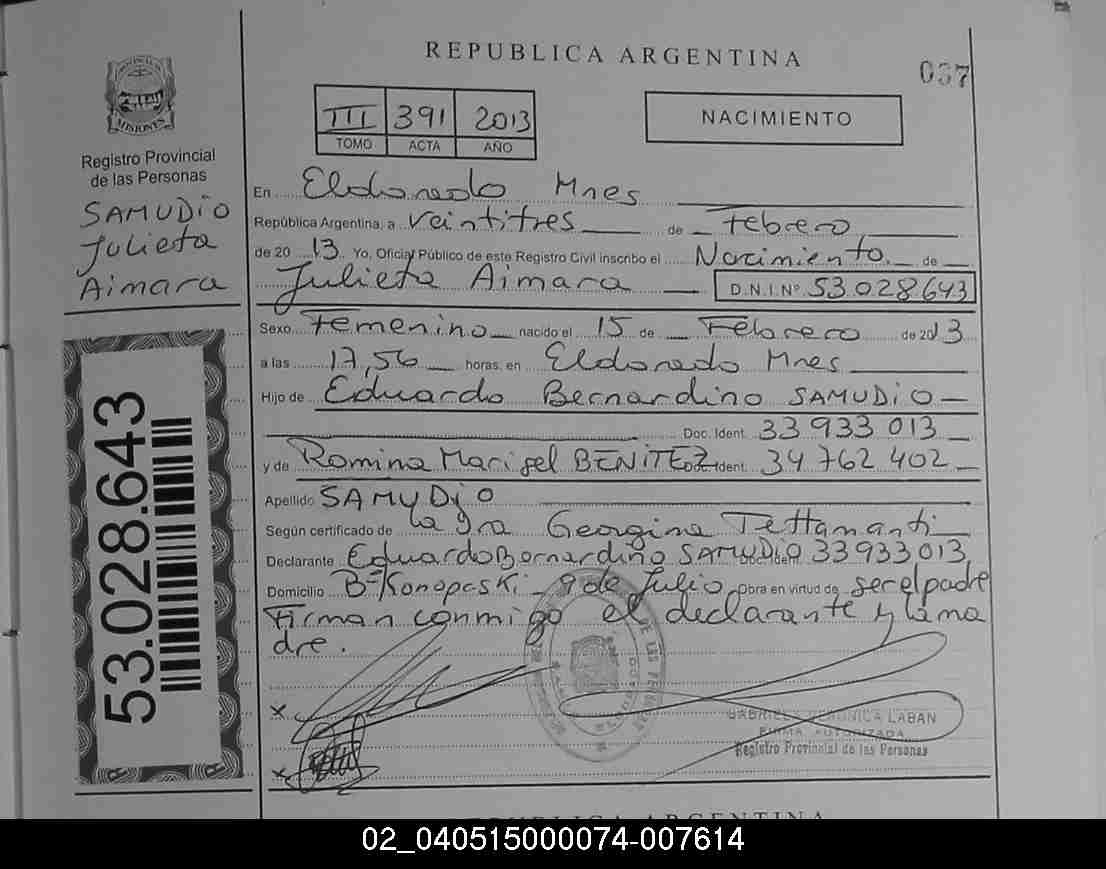 REPUBLICA ARGENTINA
037
PROVINCIA DE
MISIONES
Registro Provincial
de las Personas
SAMUDIO
Julieta
Aimara
III 391 2013
TOMO ACTA AÑO
NACIMIENTO
En Eldorado Mnes
República Argentina, a veintitres de Febrero
de 20 13 Yo, Oficial Público de este Registro Civil inscribo el Nacimiento de
Julieta Aimara D.N.I. Nº 53.028.643
Sexo Femenino nacido el 15 de Febrero de 2013
a las 17,56 horas, en Eldorado Mnes
Hijo de Eduardo Bernardino SAMUDIO
Doc. Ident. 33 933 013
y de Romina Marisel BENITEZ Doc. Ident. 34 762 402
Apellido SAMUDIO
Según certificado de la Dra Georgina Tettamanti
Declarante Eduardo Bernardino SAMUDIO Doc. Ident. 33933013
Domicilio Bº Konopaski - 9 de Julio Obra en virtud de ser el padre
Firman conmigo el declarante y la ma
dre.
53.028.643
x
x
GABRIELA VERONICA LABAN
FIRMA AUTORIZADA
Registro Provincial de las Personas
REPUBLICA ARGENTINA
02_040515000074-007614